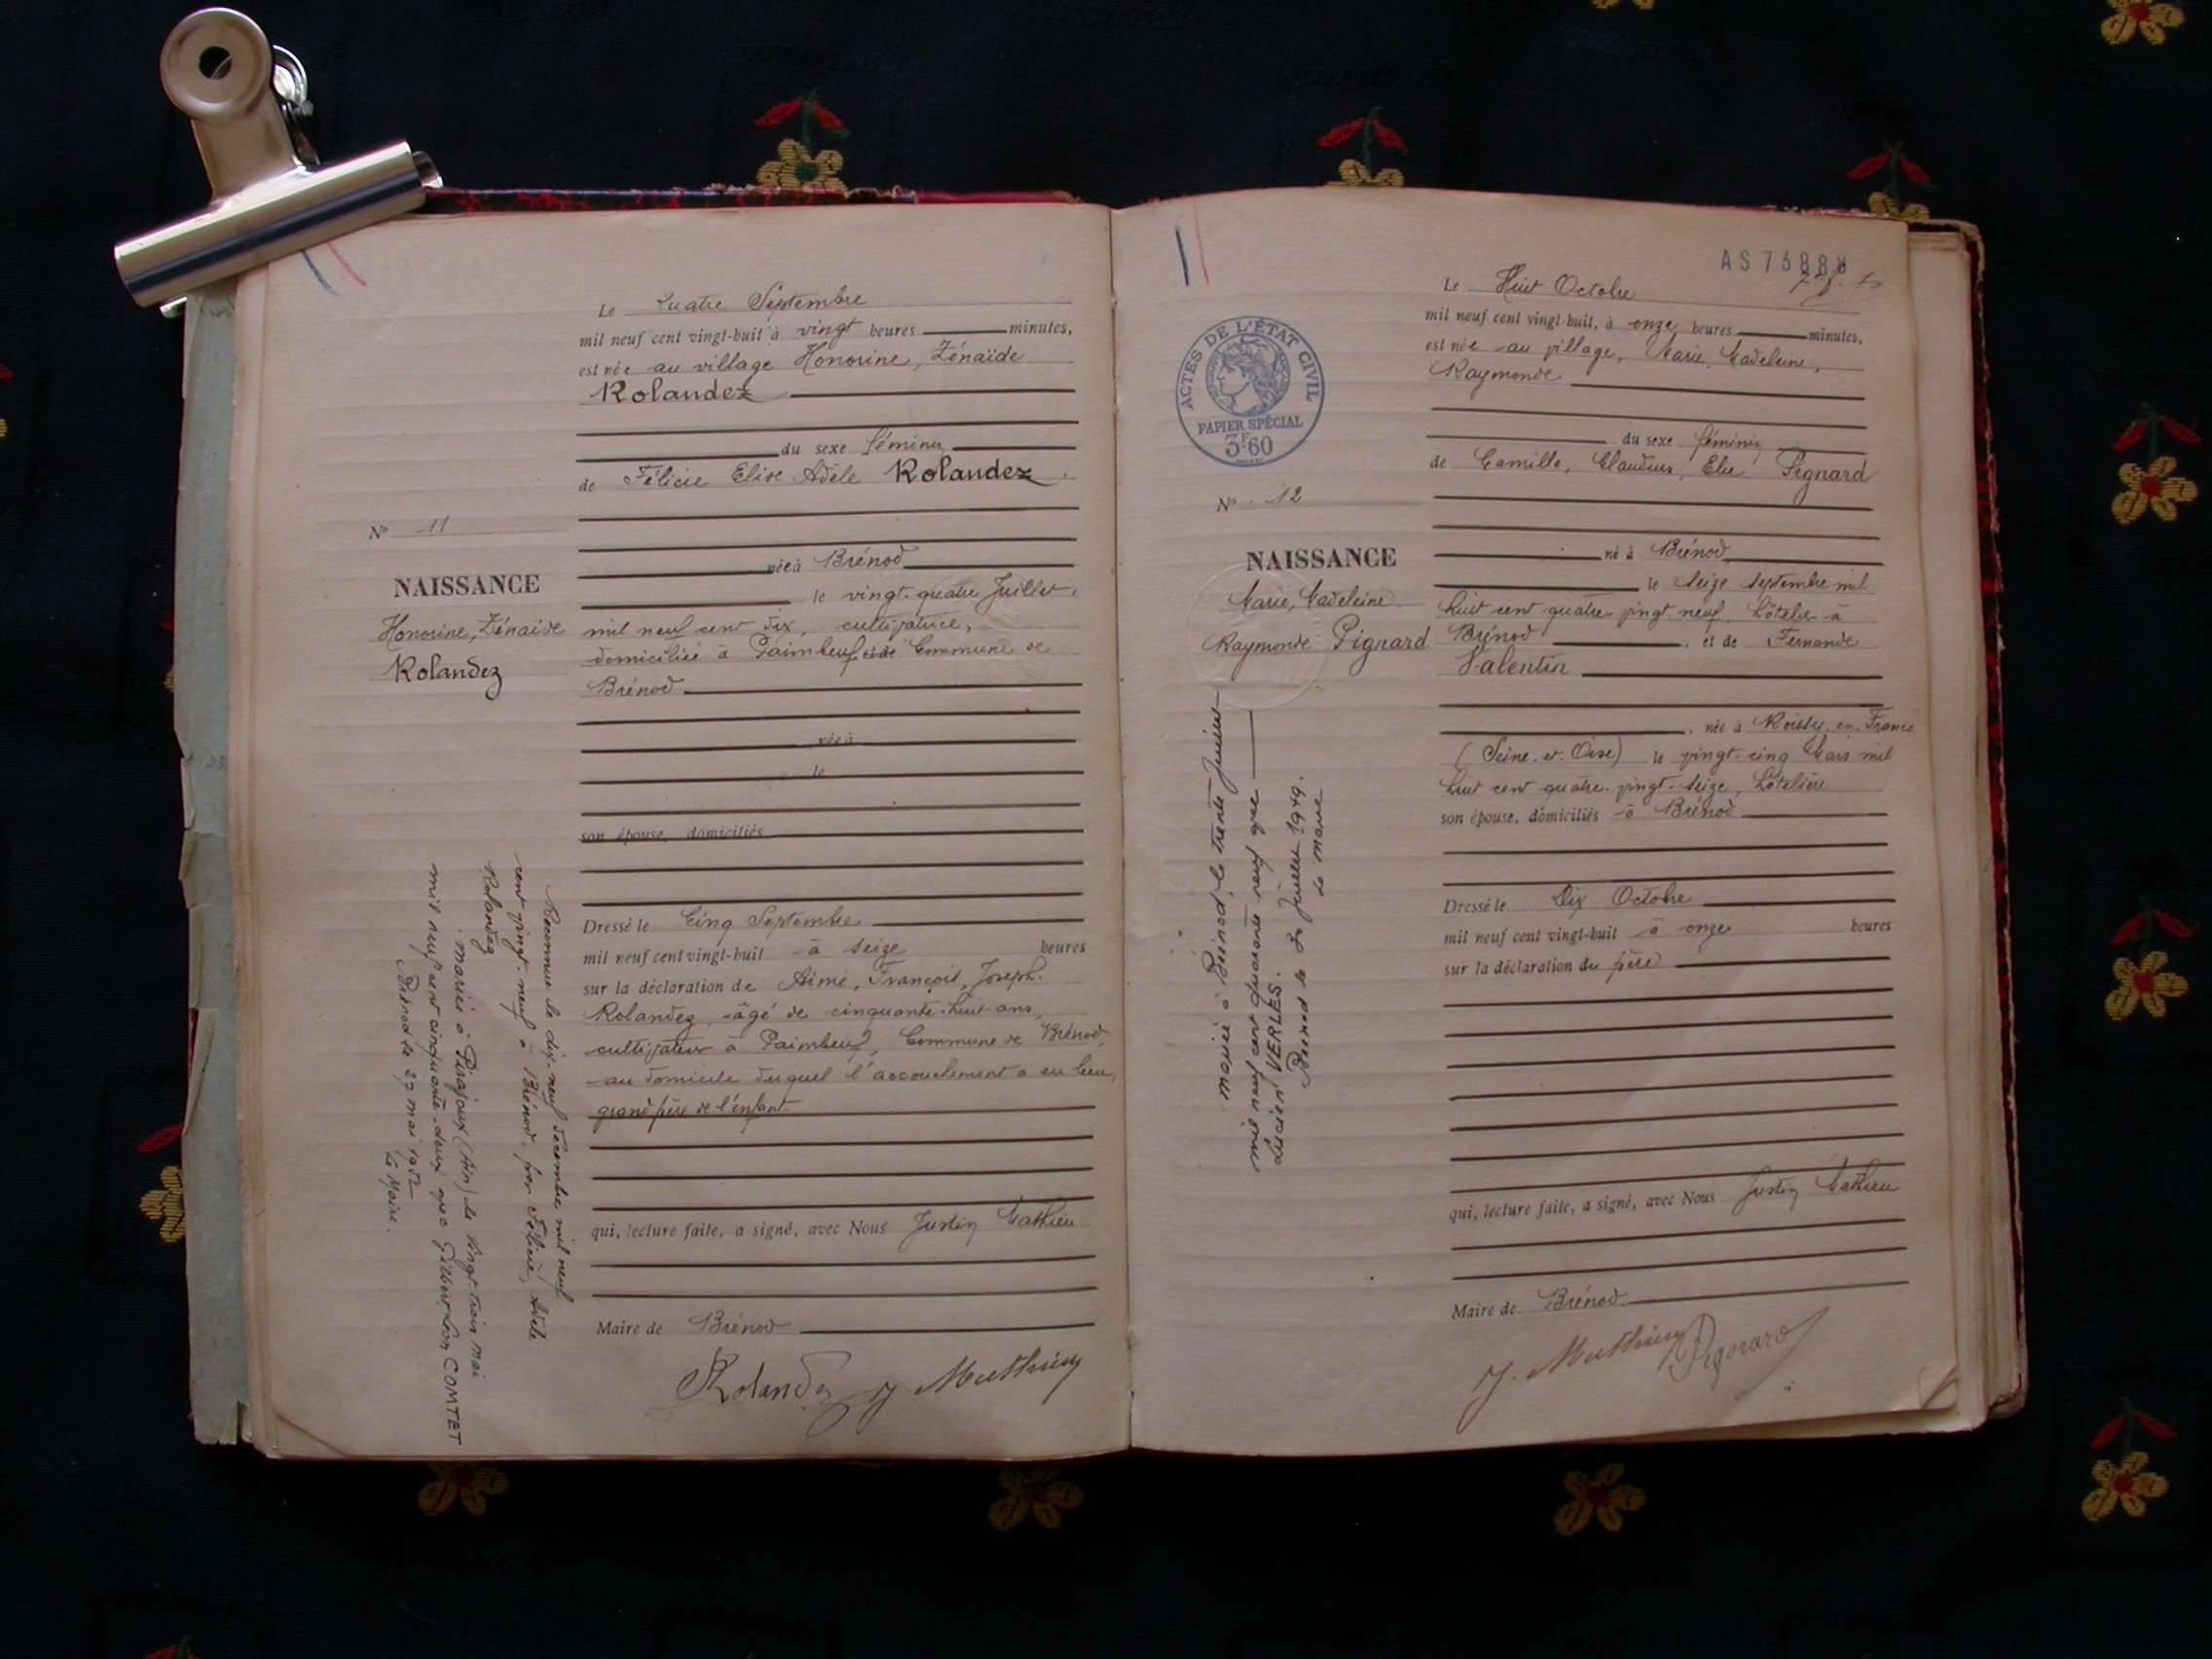 Le Quatre Septembre
mil neuf cent vingt-huit à vingt heures minutes,
est née au village Honorine, Zénaïde
Rolandez
du sexe féminin
de Félicie Elise Adèle Rolandez
née à Brénod
le vingt-quatre Juillet
mil neuf cent dix, cultivatrice,
domiciliée à Paimbeuf et de Commune de
Brénod
née à
le
son épouse, domiciliés
Dressé le Cinq Septembre
mil neuf cent vingt-huit à seize heures
sur la déclaration de Aimé, François, Joseph
Rolandez, âgé de cinquante-huit ans,
cultivateur à Paimbeuf, Commune de Brénod,
au domicile duquel l'accouchement a eu lieu,
grand père de l'enfant
qui, lecture faite, a signé, avec Nous Justin Mathieu
Maire de Brénod
Rolandez J Mathieu
No 11
NAISSANCE
Honorine, Zénaïde
Rolandez
Reconnue le dix-neuf décembre mil neuf
cent vingt-neuf à Brénod, par Félicie, Adèle
Rolandez
mariée à Pirajoux (Ain) le vingt-trois mai
mil neuf cent cinquante-deux avec COMTET
Brénod le 27 mai 1952
Le Maire.
AS 7388
Le Huit Octobre
mil neuf cent vingt-huit, à onze heures minutes,
est née au village, Marie, Madeleine,
Raymonde
du sexe féminin
de Camille, Claudius, Elie Pignard
né à Brénod
le seize septembre mil
huit cent quatre-vingt-neuf, hôtelier à
Brénod, et de Fernande
Valentin
née à Roissy-en-France
(Seine-et-Oise) le vingt-cinq Mars mil
huit cent quatre-vingt-seize, hôtelière
son épouse, domiciliés à Brénod
Dressé le Dix Octobre
mil neuf cent vingt-huit à onze heures
sur la déclaration du père
qui, lecture faite, a signé, avec Nous Justin Mathieu
Maire de Brénod
J. Mathieu Pignard
ACTES DE L'ÉTAT CIVIL
PAPIER SPÉCIAL
3F60
No 12
NAISSANCE
Marie, Madeleine
Raymonde Pignard
mariée à Brénod, le trente
mil neuf cent quarante neuf avec
Lucien VERLES.
Brénod le 30 1949.
Le maire